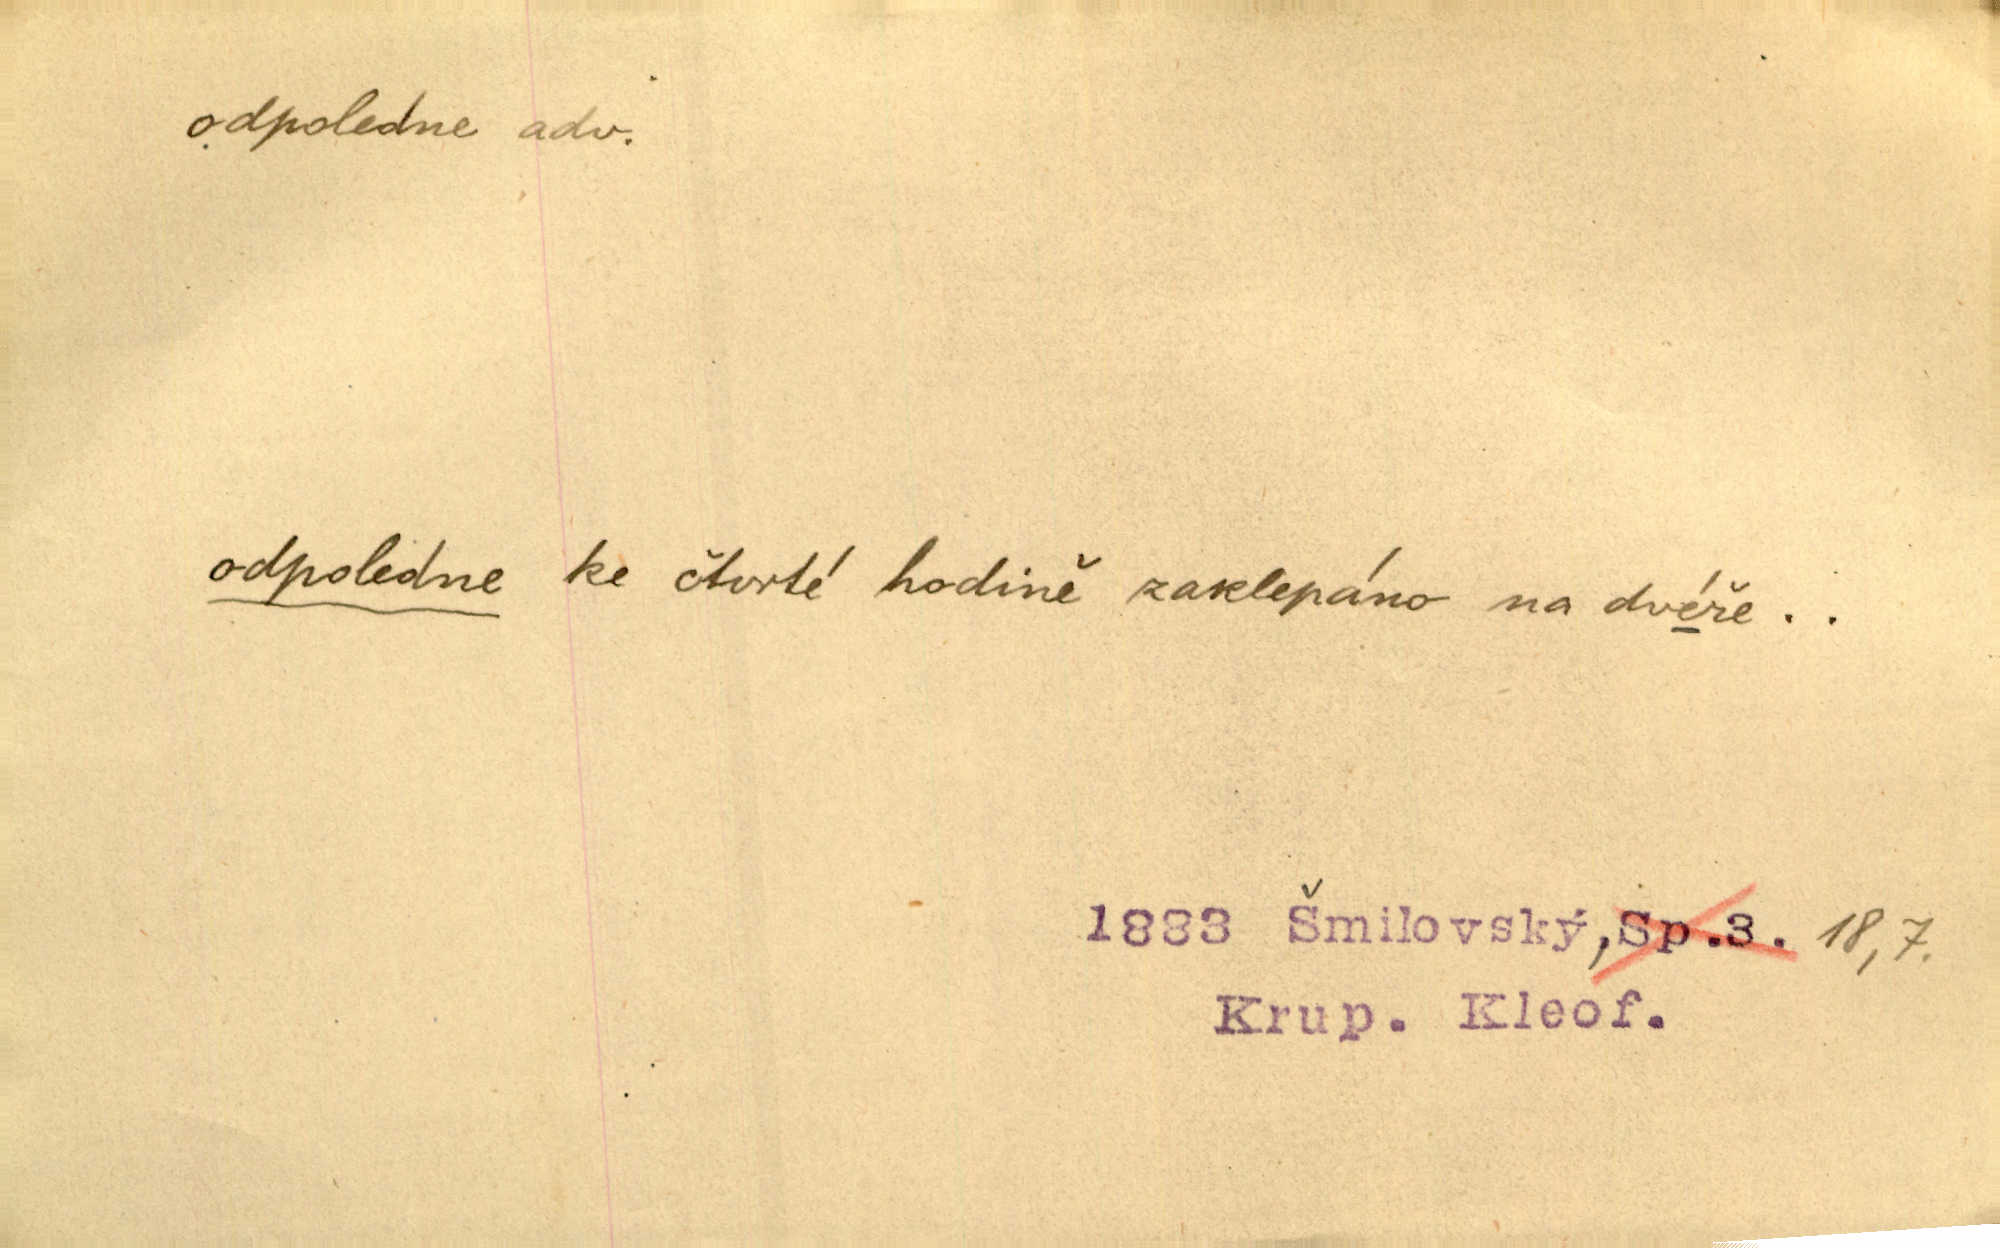 odpoledne adv.
odpoledne ke čtvrté hodině zaklepáno na dvéře . .
1883 Šmilovský, Sp.3. 18, 7.
Krup. Kleof.